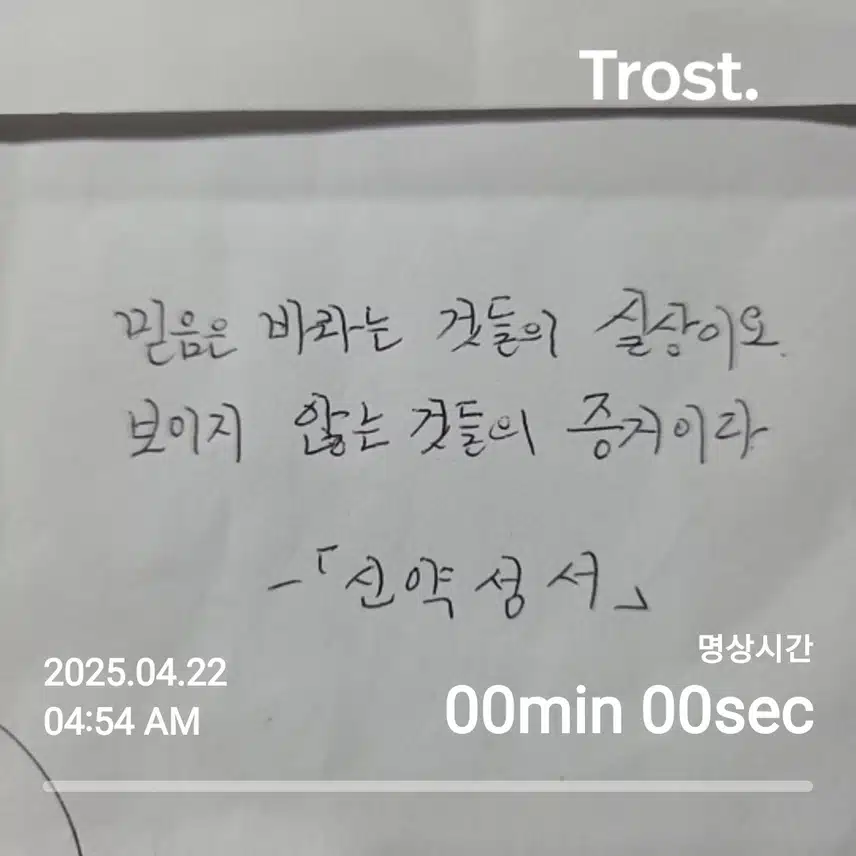 Trost.
믿음은 바라는 것들의 실상이요.
보이지 않는 것들의 증거이라
-「신약성서」
명상시간
2025.04.22
00min 00sec
04:54 AM